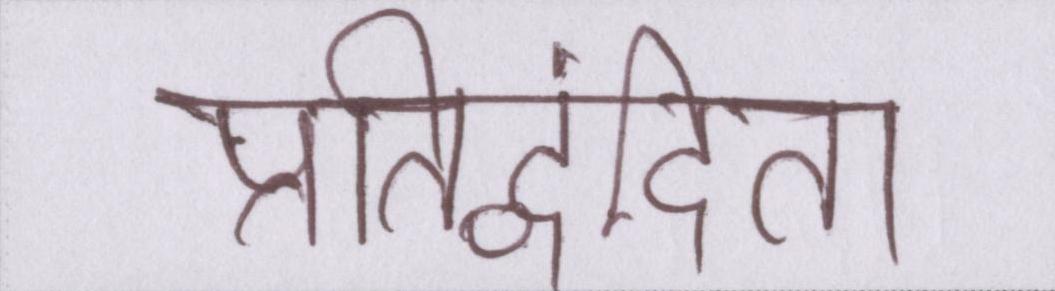 प्रतिद्वंदिता